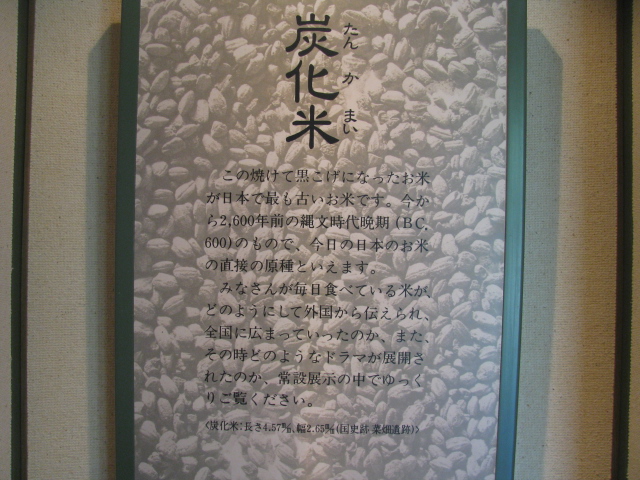 炭化米
たんかまい
この焼けて黒こげになったお米
が日本で最も古いお米です。今か
ら2,600年前の縄文時代晩期（BC,
600)のもので、今日の日本のお米
の直接の原種といえます。
みなさんが毎日食べている米が、
どのようにして外国から伝えられ、
全国に広まっていったのか、また、
その時どのようなドラマが展開さ
れたのか、常設展示の中でゆっく
りご覧ください。
〈炭化米:長さ4.57㎜、幅2.65㎜(国史跡 菜畑遺跡)〉